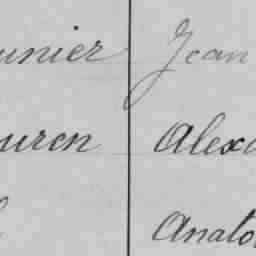 unier Jean
uren Alexa
Anato